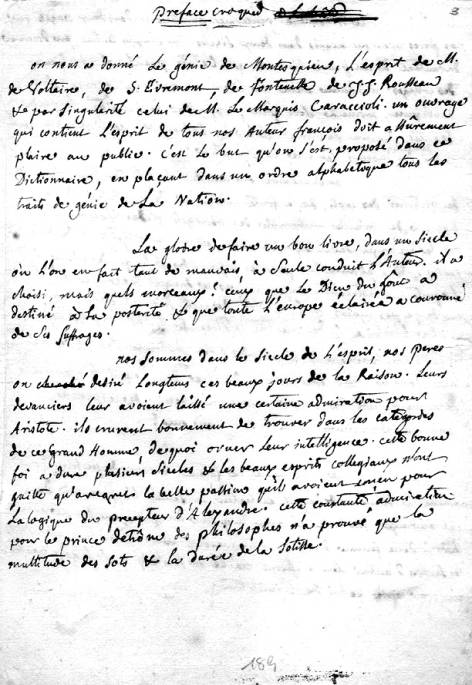 Preface croqués 3
on nous a donné Le génie de Montesquieu, L'esprit de M.
de Voltaire, de S. Evremont, de Fontenelle de J. J. Rousseau
& par Singularité celui de M. Le Marquis Caraccioli. un ouvrage
qui contient L'esprit de tous nos Auteur françois doit assurement
plaire au public. C'est Le but qu'on s'est proposé dans ce
Dictionnaire, en plaçant dans un ordre alphabetique tous les
traits de génie de La Nation.
La gloire de faire un bon livre, dans un Siecle
où L'on en fait tant de mauvais, à Seule conduit L'Auteur. il a
choisi, mais quels morceaux! ceux que Le Dieu du goût a
destiné à La posterité & que toute L'europe éclairée a couronné
de Ses Suffrages.
nos Sommes dans le Siecle de L'esprit, nos peres
on desiré Longtems ces beaux jours de La Raison. Leurs
devanciers leur avoient laissé une certaine admiration pour
Aristote. ils crurent bonnement de trouver dans les categories
de ce grand Homme, de quoi orner Leur intelligence. cette bonne
foi a duré plusieurs Siecles & les beaux esprits collegiaux n'ont
quitté qu'a regrets la belle passion qu'ils avoient pour
La Logique du precepteur d'Alexandre. cette constante admiration
pour le prince des philosophes n'a prouvé que la
multitude des Sots & La durée de la Sottise.
189